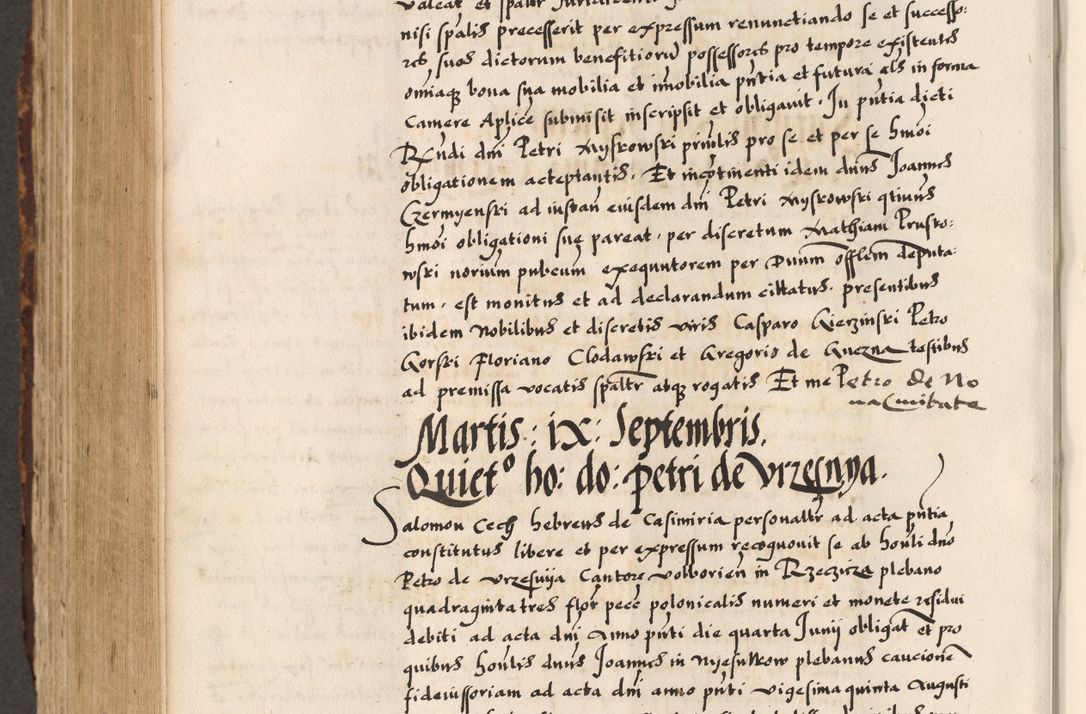 valeat et spaltr
nisi spalis precesserit per expressum renunctiando se et successo:
res suos dictorum benefitiorum possessores pro tempore existentes
omiaq bona sua mobilia et imobilia pntia et futura als in forma
Camere Aplice submisit inscripsit et obligavit. In pntia dicti
Rxndi dni Petri Myskowski prinlis pro se et per se hmoi
obligationem acceptantis. Et incotinenti idem dnus Joannes
Czermyenski ad instan eiusdem dni Petri Myskowski qtinus
hmoi obligationi sue pareat. per discretum Mathiam Prusko:
wski norium pubcum exequutorem per Dnum offlem deputa:
tum. est monitus et ad declarandum cittatus. presentibus
ibidem Nobilibus et discretis viris Casparo Gierzinski Petro
Gorski Floriano Clodawski et Gregorio de Gnezna testibus
ad premissa vocatis spaltr atq rogatis Et me Petro de No
va Civitate
Martis : ix : Septembris.
Quiet° ho: do: petri de Vrzesnya.
Salomon Cech hebreus de Casimiria personaltr ad acta pntia
constitutus libere et per expressum recognovit se ab honli dno
Petro de Vrzesnija Cantore Volborien in Rzeczicza plebano
quadraginta tres flor pecc polonicalis numeri et monete residui
debiti ad acta dnj Anno pnti die quarta Junij obligat et pro
quibus honlis dnus Joannes in plebanus caucione
fideiussoriam ad acta dni anno pnti vigesima quinta Augusti